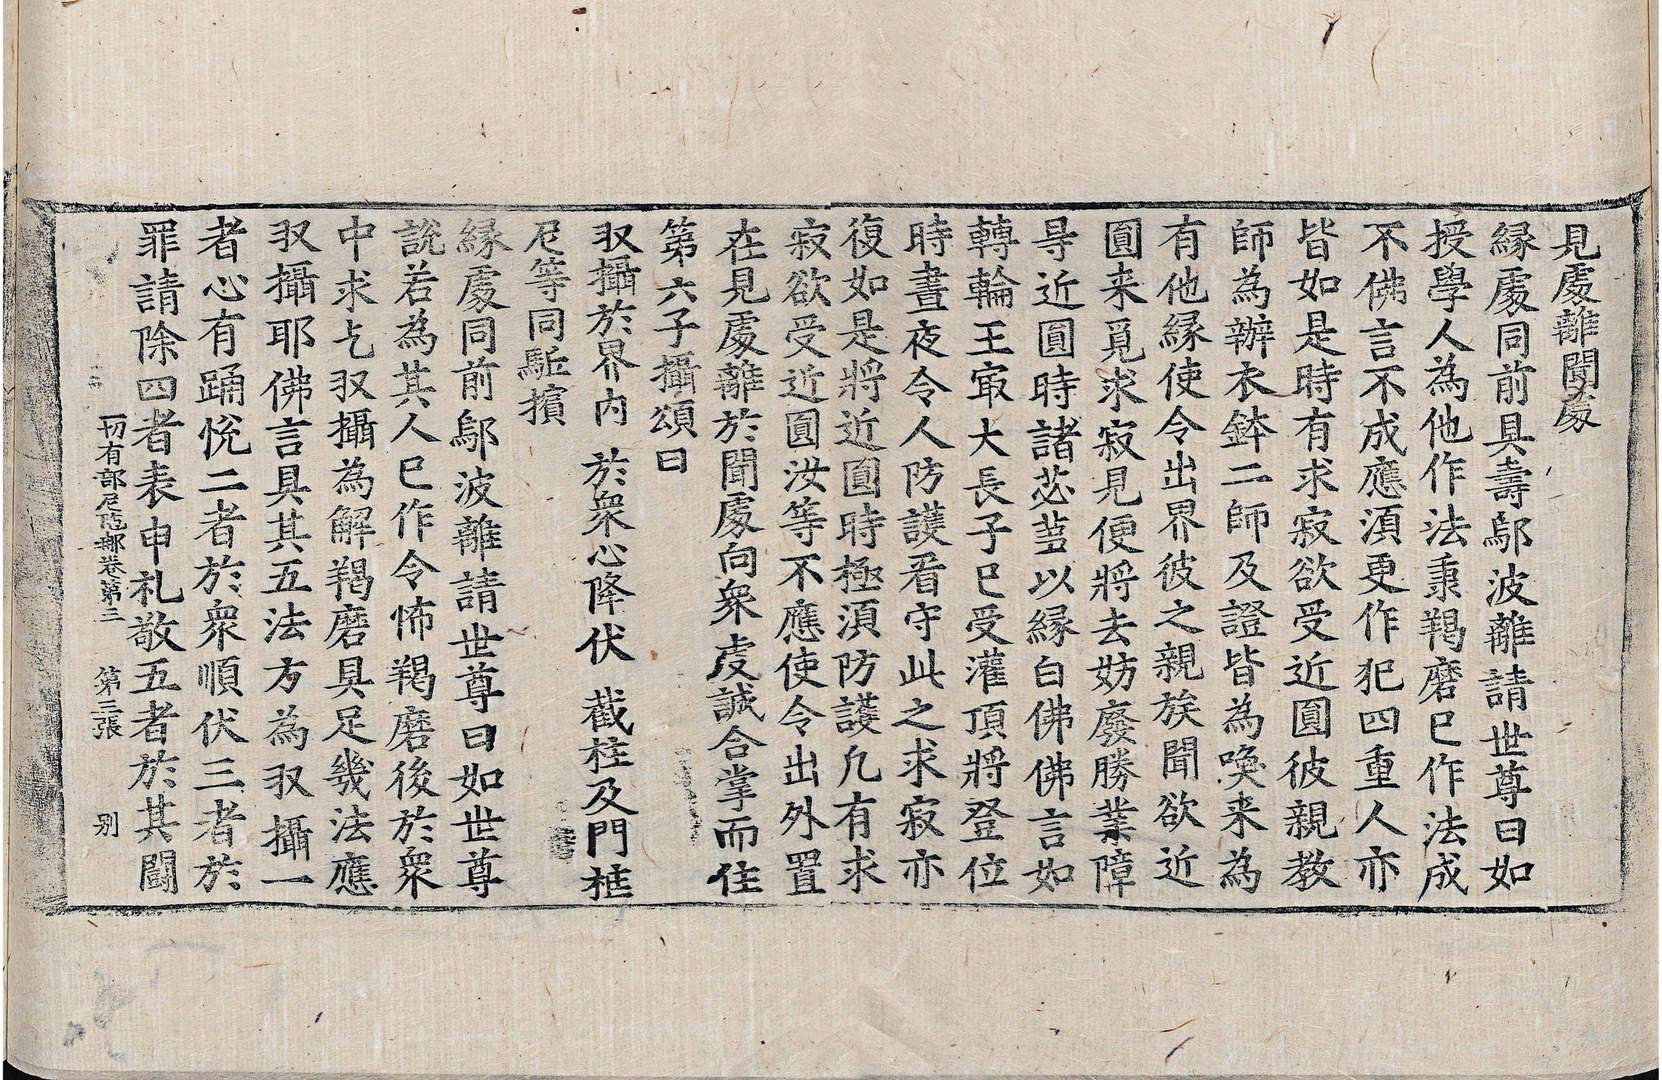 見處離聞處
縁處同前具壽鄔波離請世尊曰如
授學人為他作法秉羯磨已作法成
不佛言不成應湏更作犯四重人亦
皆如是時有求寂欲受近圓彼親教
師為辦衣鉢二師及證皆為喚来為
有他縁使令出界彼之親族聞欲近
圓来覓求寂見便將去妨廢勝業障
㝵近圓時諸苾蒭以縁白佛佛言如
轉輪王㝡大長子已受灌頂將登位
時晝夜令人防護看守此之求寂亦
復如是將近圓時極湏防護凡有求
寂欲受近圓汝等不應使令出外置
在見處離於聞處向衆虔誠合掌而住
第六子攝頌曰
収攝於界内　於衆心降伏　截柱及門桩
尼等同驅擯
縁處同前鄔波離請世尊曰如世尊
說若為其人已作令怖羯磨後於衆
中求乞収攝為解羯磨具足幾法應
収攝耶佛言具其五法方為収攝一
者心有踊悅二者於衆順伏三者於
罪請除四者表申礼敬五者於其鬪
一切有部尼陁那卷第三　第三張　別